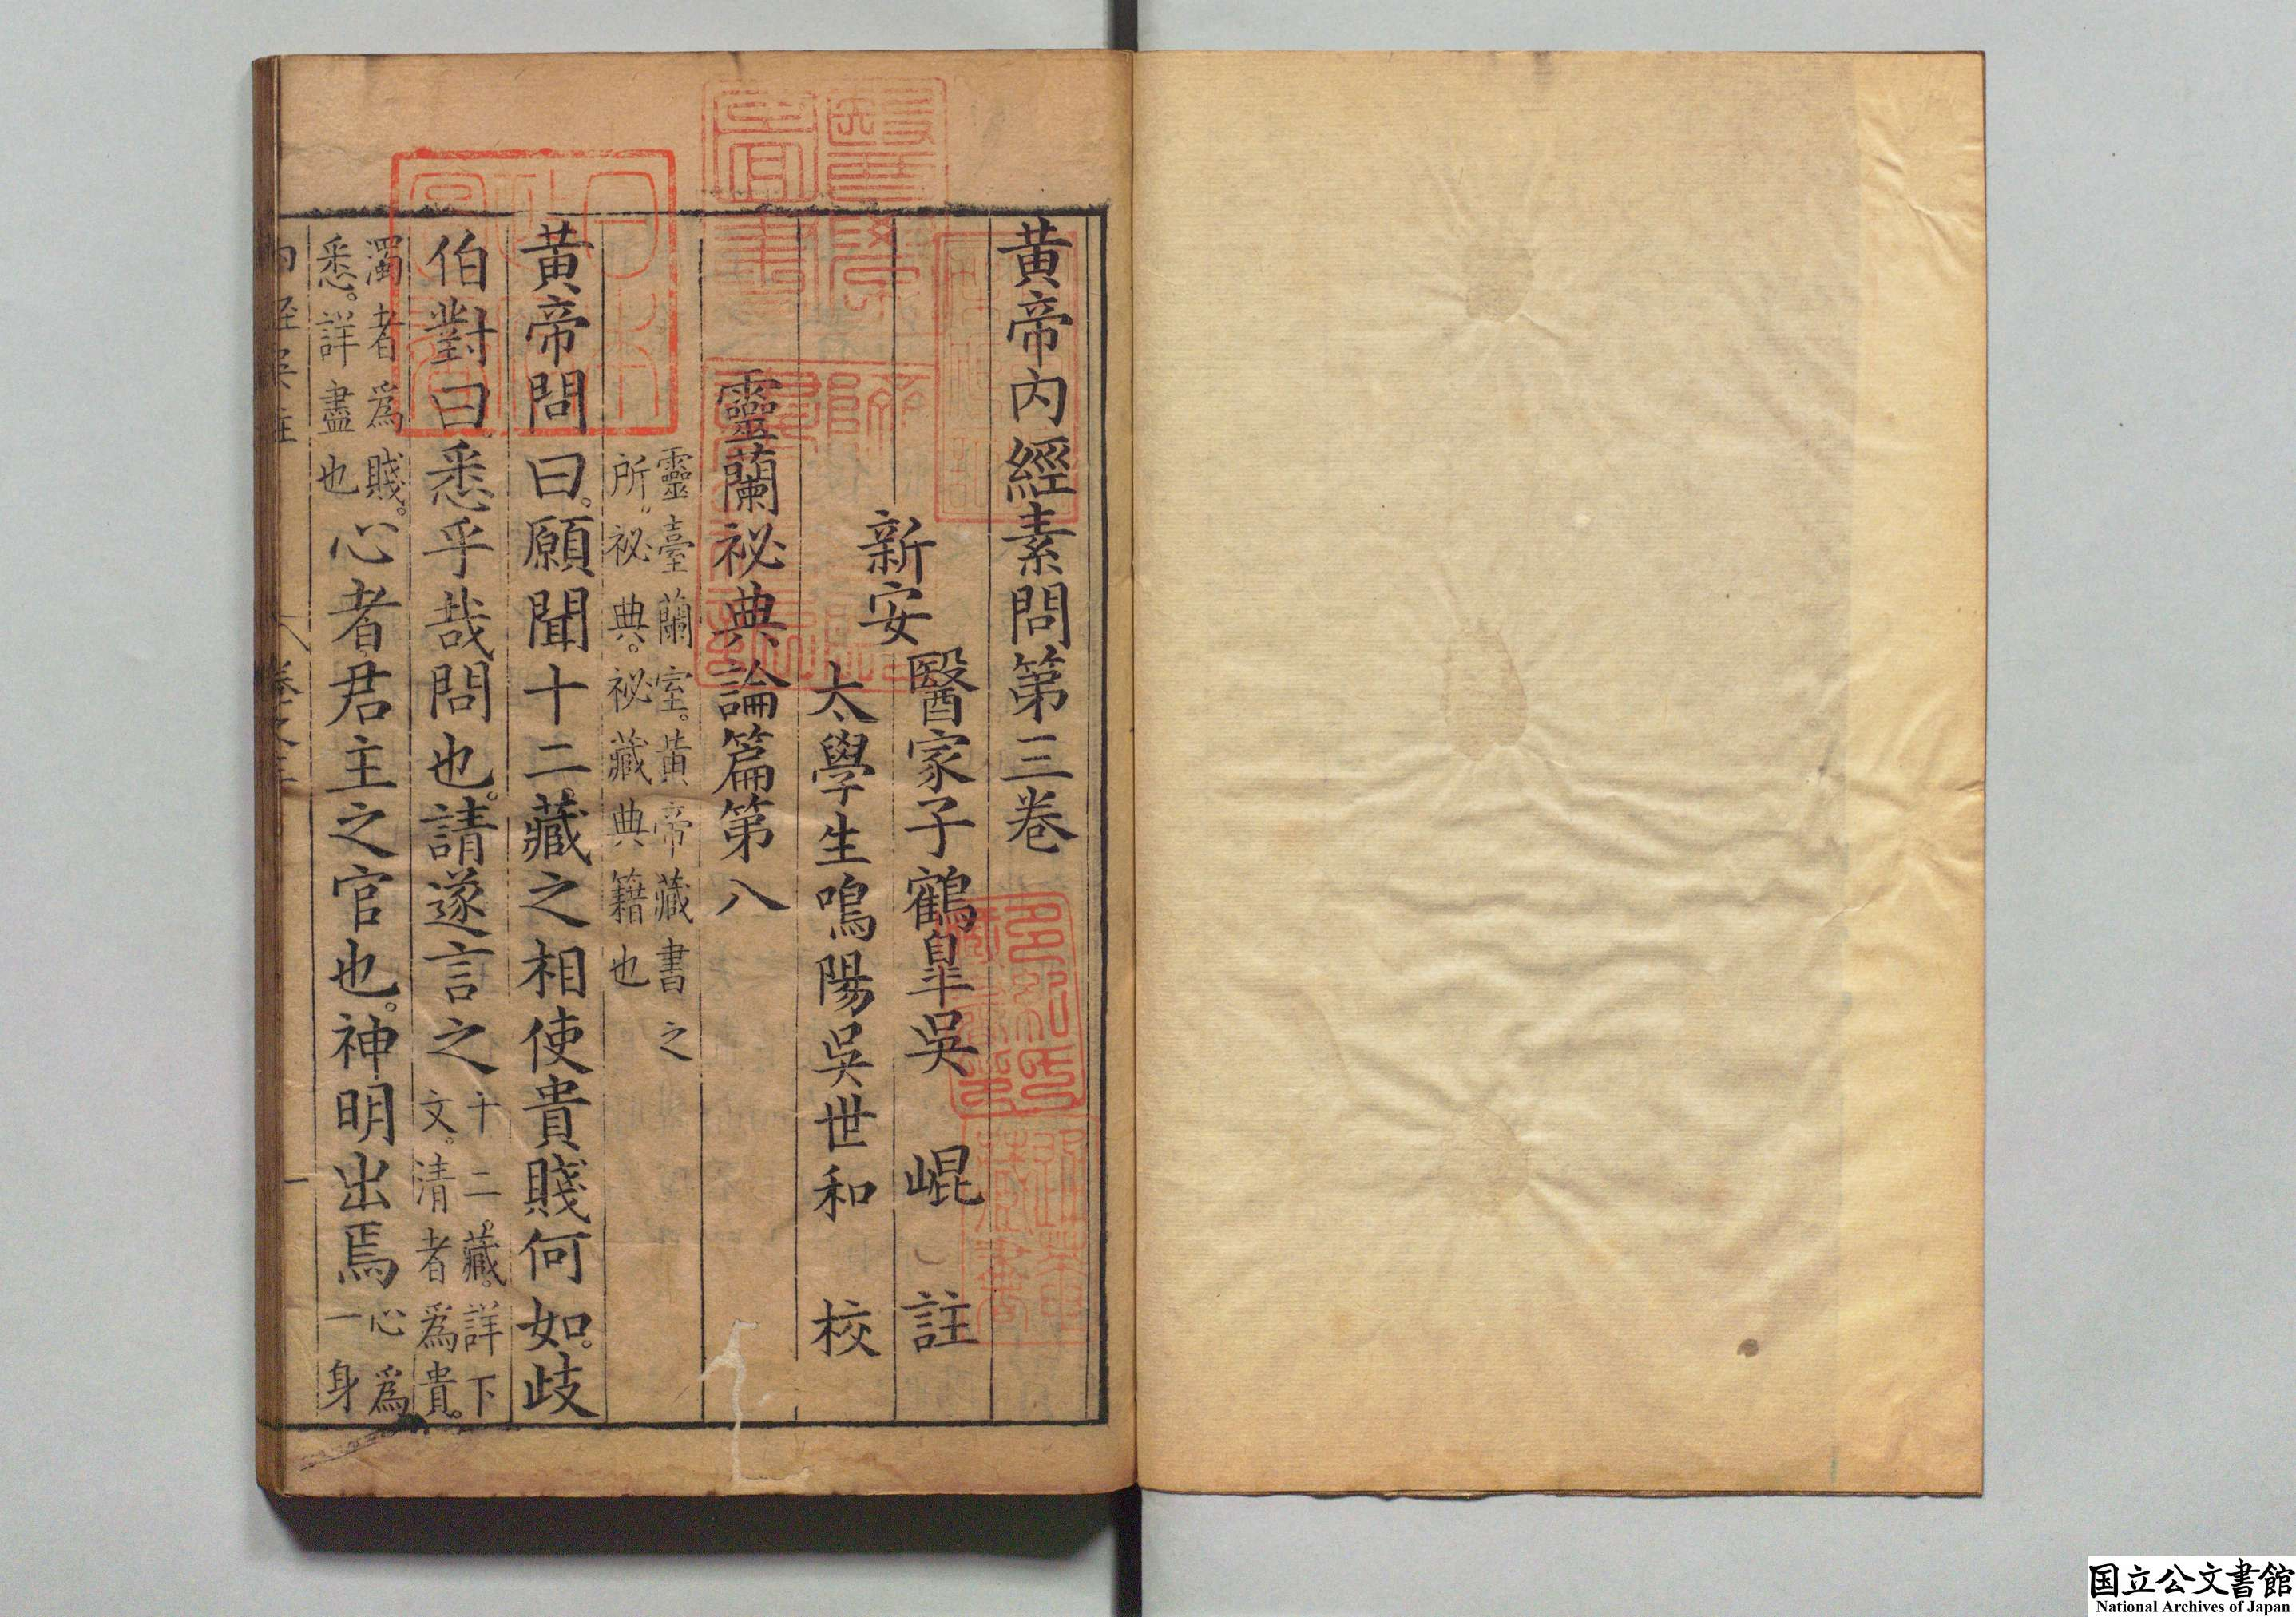 黃帝內經素問第三卷
新安
醫家子鶴皐吳 崐 註
太學生鳴陽吳世和 校
靈蘭祕典論篇第八
靈臺蘭室。黃帝藏書之
所。祕典。祕藏典籍也
黃帝問曰。願聞十二藏之相使貴賤何如。歧
伯對曰。悉乎哉問也。請遂言之
十二藏。詳下
文。清者爲貴。
濁者爲賤。
悉。詳盡也
心者。君主之官也。神明出焉
心爲
一身
卷之三
一
国立公文書館
National Archives of Japan